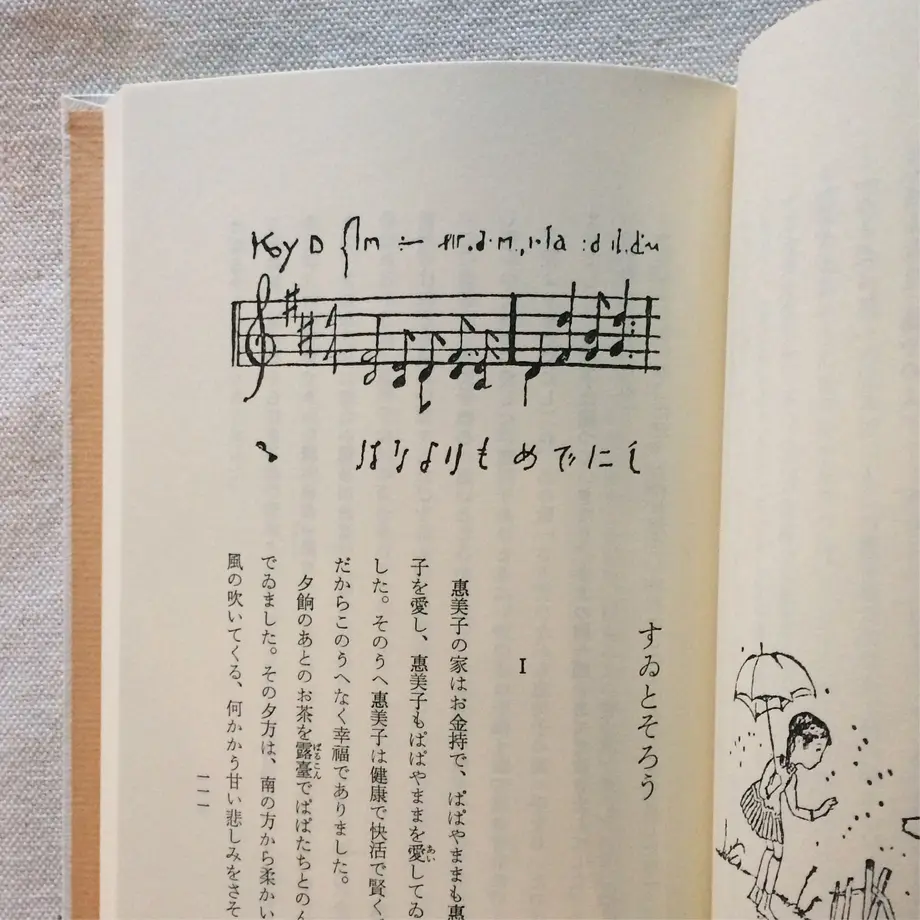 Key D
はなよりもめでにし
すゐとそろう
I
惠美子の家はお金持で、ぱぱやままも惠
子を愛し、惠美子もぱぱやままを愛してゐ
した。そのうへ惠美子は健康で快活で賢く
だからこのうへなく幸福でありました。
夕餉のあとのお茶を露臺でぱぱたちとのん
でゐました。その夕方は、南の方から柔かい
風の吹いてくる、何かかう甘い悲しみをさそ
一一一